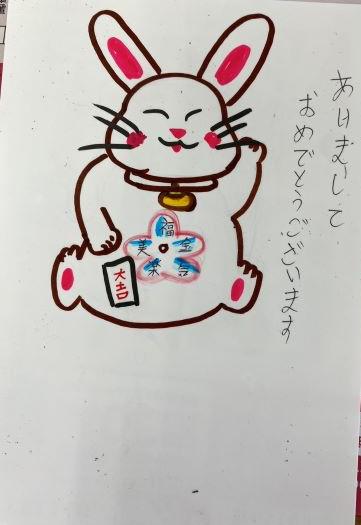 あけまして
おめでとうございます
福
美
金
楽
合
大吉